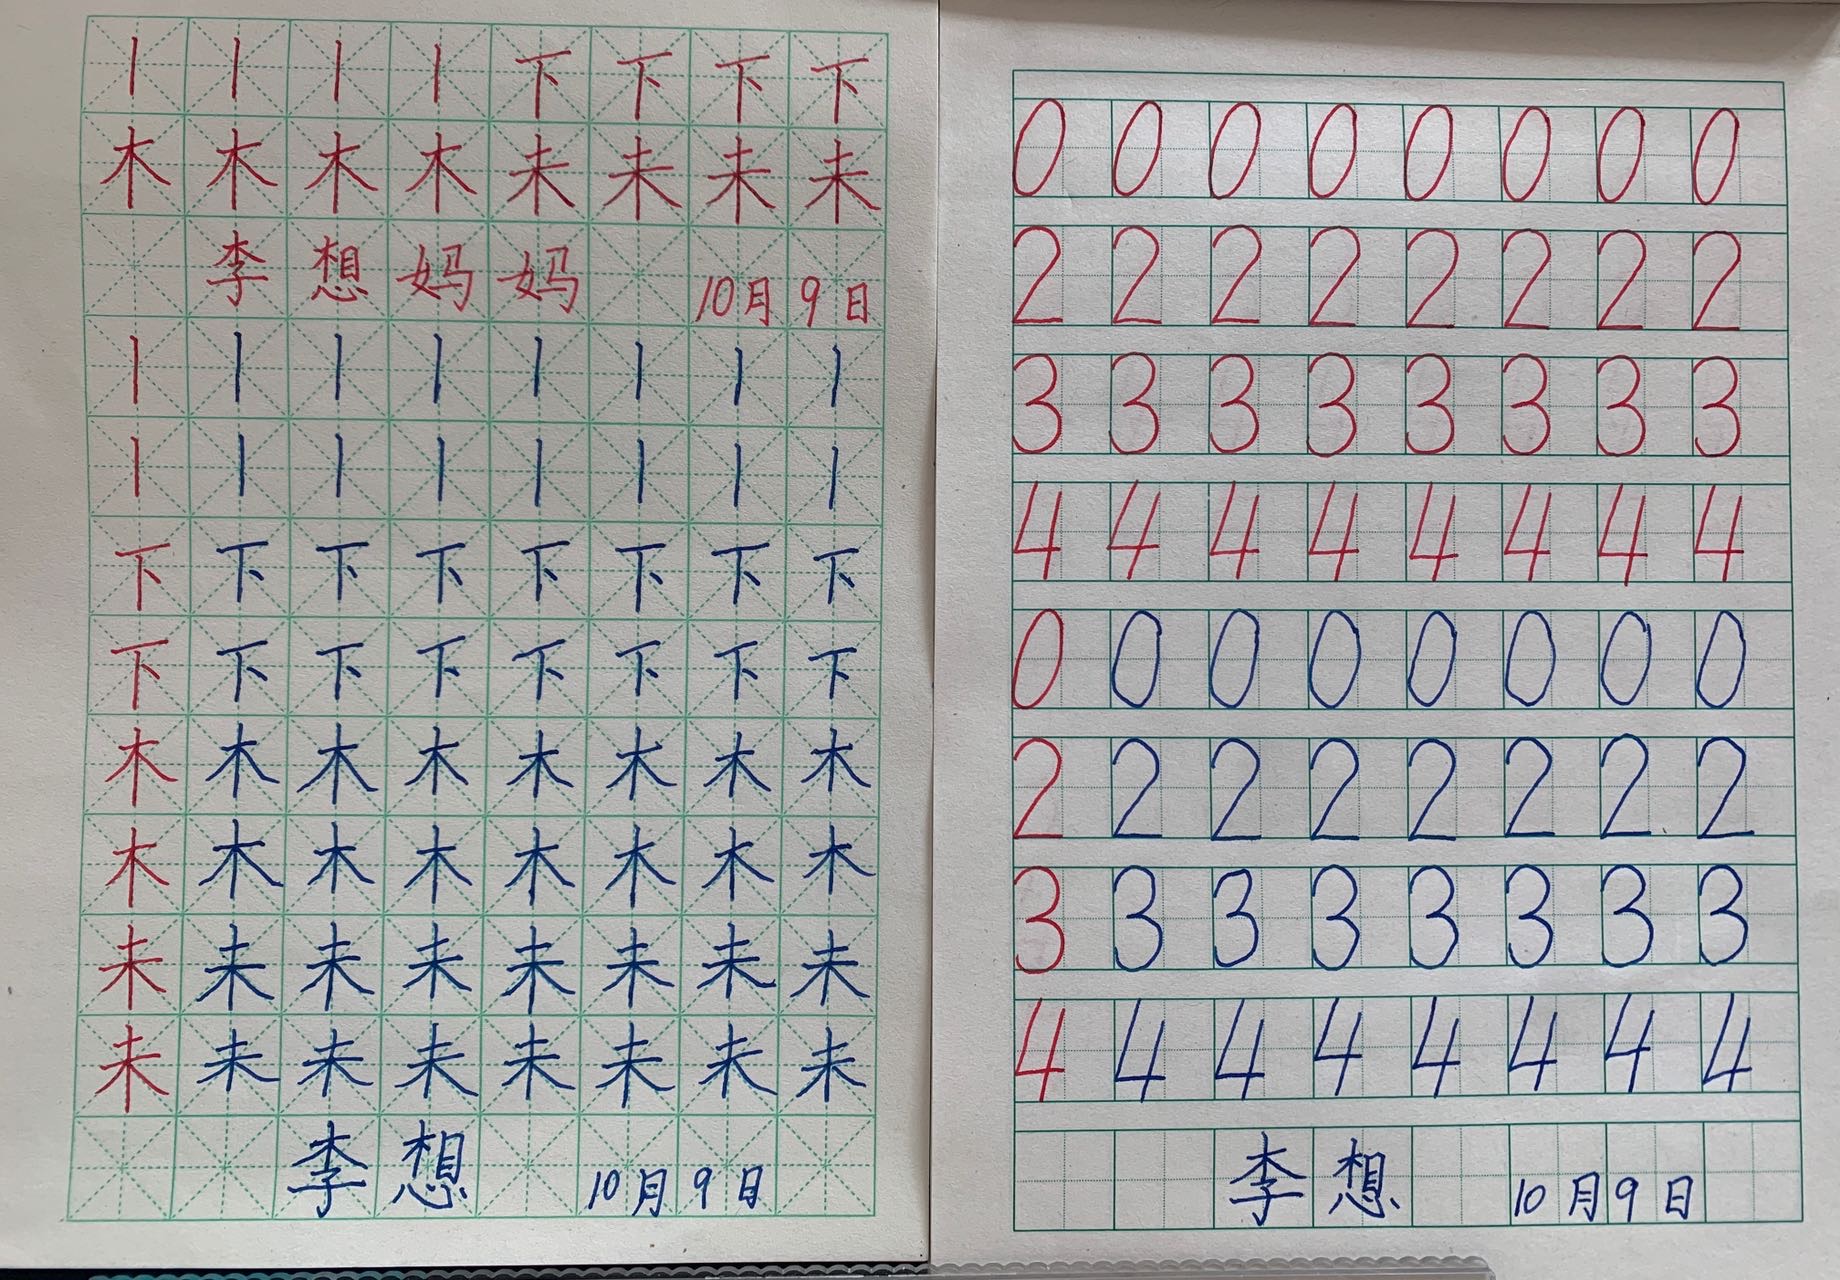 丨 丨 丨 丨 下 下 下 下
木 木 木 木 未 未 未 未
李 想 妈 妈 10月 9 日
丨 丨 丨 丨 丨 丨 丨 丨
丨 丨 丨 丨 丨 丨 丨 丨
下 下 下 下 下 下 下 下
下 下 下 下 下 下 下 下
木 木 木 木 木 木 木 木
木 木 木 木 木 木 木 木
未 未 未 未 未 未 未 未
未 未 未 未 未 未 未 未
李 想 10 月 9 日
0 0 0 0 0 0 0 0
2 2 2 2 2 2 2 2
3 3 3 3 3 3 3 3
4 4 4 4 4 4 4 4
0 0 0 0 0 0 0 0
2 2 2 2 2 2 2 2
3 3 3 3 3 3 3 3
4 4 4 4 4 4 4 4
李 想 10 月 9 日